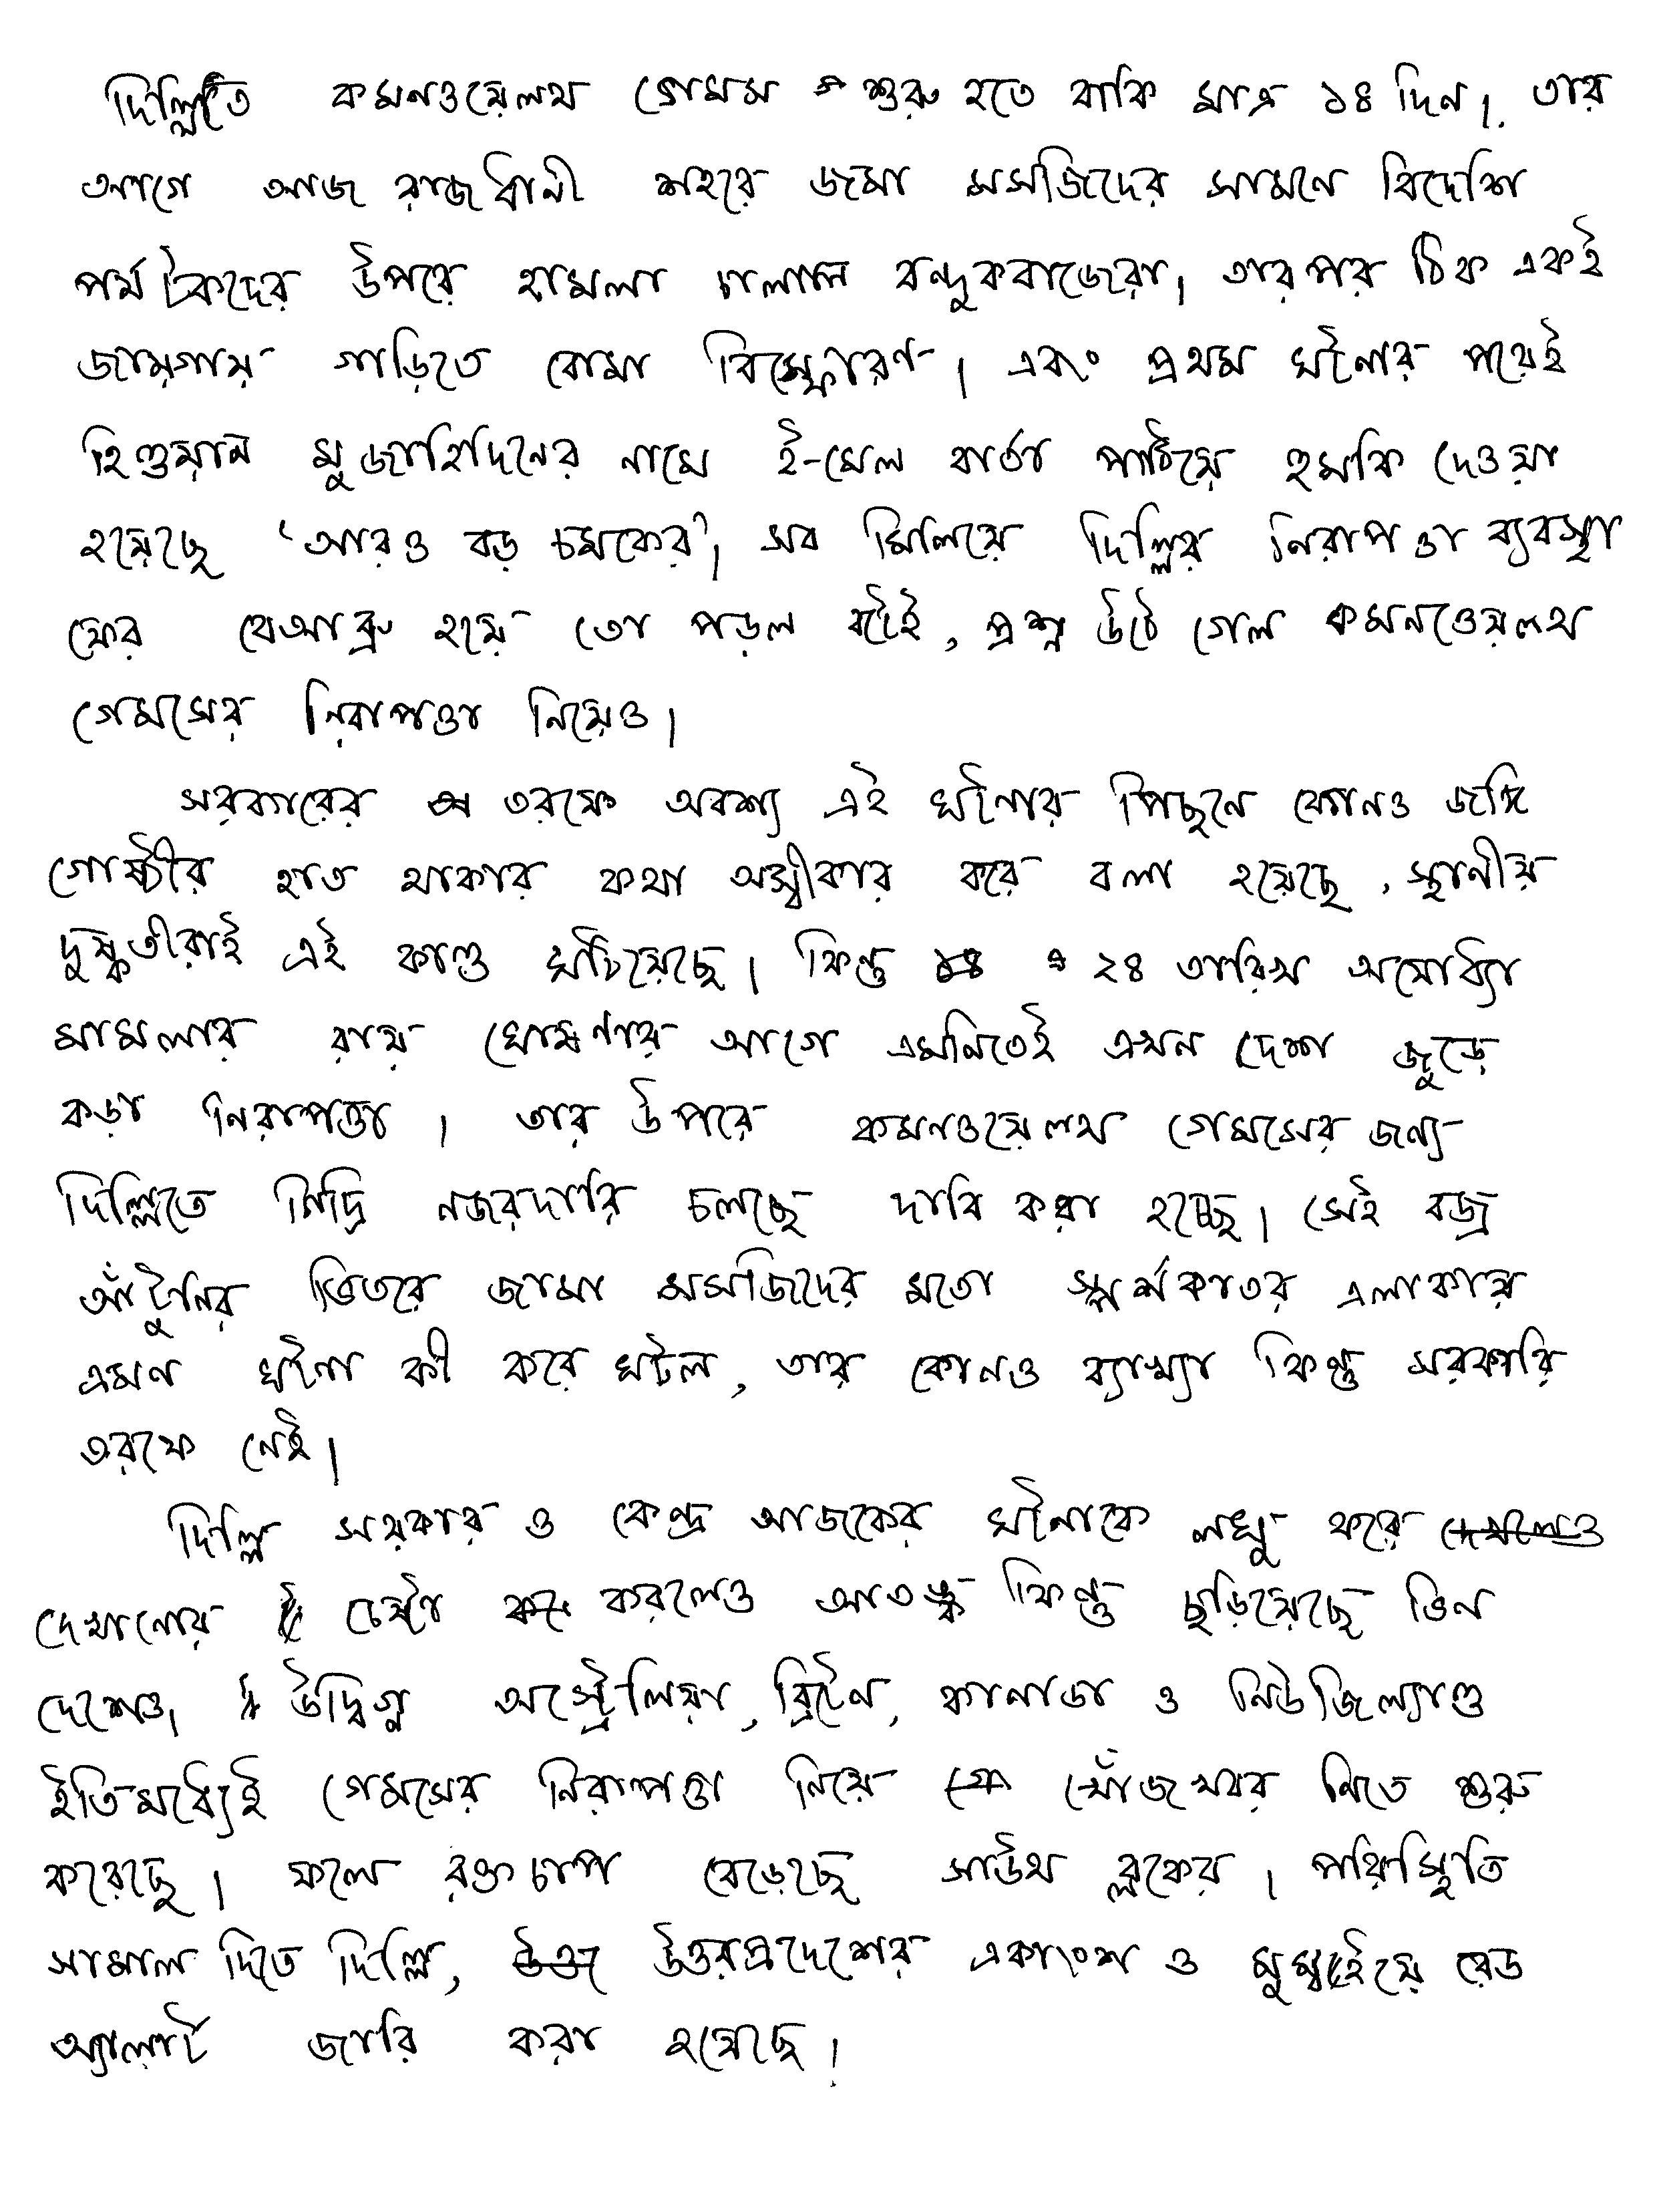 দিল্লিতে কমনওয়েলথ গেমস শুরু হতে বাকি মাত্র ১৪ দিন। তার
আগে আজ রাজধানী শহরে জমা মসজিদের সামনে বিদেশি
পর্যটকদের উপরে হামলা চালাল বন্দুকবাজেরা। তারপর ঠিক একই
জায়গায় গাড়িতে বোমা বিস্ফোরণ। এবং প্রথম ঘটনার পরেই
ইণ্ডিয়ান মুজাহিদিনের নামে ই-মেল বার্তা পাঠিয়ে হুমকি দেওয়া
হয়েছে ‘আরও বড় চমকের’। সব মিলিয়ে দিল্লির নিরাপত্তা ব্যবস্থা
ফের বেআব্রু হয়ে তো পড়ল বটেই, প্রশ্ন উঠে গেল কমনওয়েলথ
গেমসের নিরাপত্তা নিয়েও।
সরকারের তরফে অবশ্য এই ঘটনার পিছনে কোনও জঙ্গি
গোষ্ঠীর হাত থাকার কথা অস্বীকার করে বলা হয়েছে, স্থানীয়
দুষ্কৃতীরাই এই কাণ্ড ঘটিয়েছে। কিন্তু ২৪ তারিখ অযোধ্যা
মামলার রায় ঘোষণার আগে এমনিতেই এখন দেশ জুড়ে
কড়া নিরাপত্তা। তার উপরে কমনওয়েলথ গেমসের জন্য
দিল্লিতে নিশ্ছিদ্র নজরদারি চলছে দাবি করা হচ্ছে। সেই বজ্র
আঁটুনির ভিতরে জামা মসজিদের মতো স্পর্শকাতর এলাকায়
এমন ঘটনা কী করে ঘটল, তার কোনও ব্যাখ্যা কিন্তু সরকারি
তরফে নেই।
দিল্লি সরকার ও কেন্দ্র আজকের ঘটনাকে লঘু করে
দেখানোর চেষ্টা করলেও আতঙ্ক কিন্তু ছড়িয়েছে ভিন
দেশেও। উদ্বিগ্ন অস্ট্রেলিয়া, ব্রিটেন, কানাডা ও নিউজিল্যাণ্ড
ইতিমধ্যেই গেমসের নিরাপত্তা নিয়ে খোঁজখবর নিতে শুরু
করেছে। ফলে রক্তচাপ বেড়েছে সাউথ ব্লকের। পরিস্থিতি
সামাল দিতে দিল্লি, উত্তরপ্রদেশের একাংশ ও মুম্বাইয়ে রেড
অ্যালার্ট জারি করা হয়েছে।